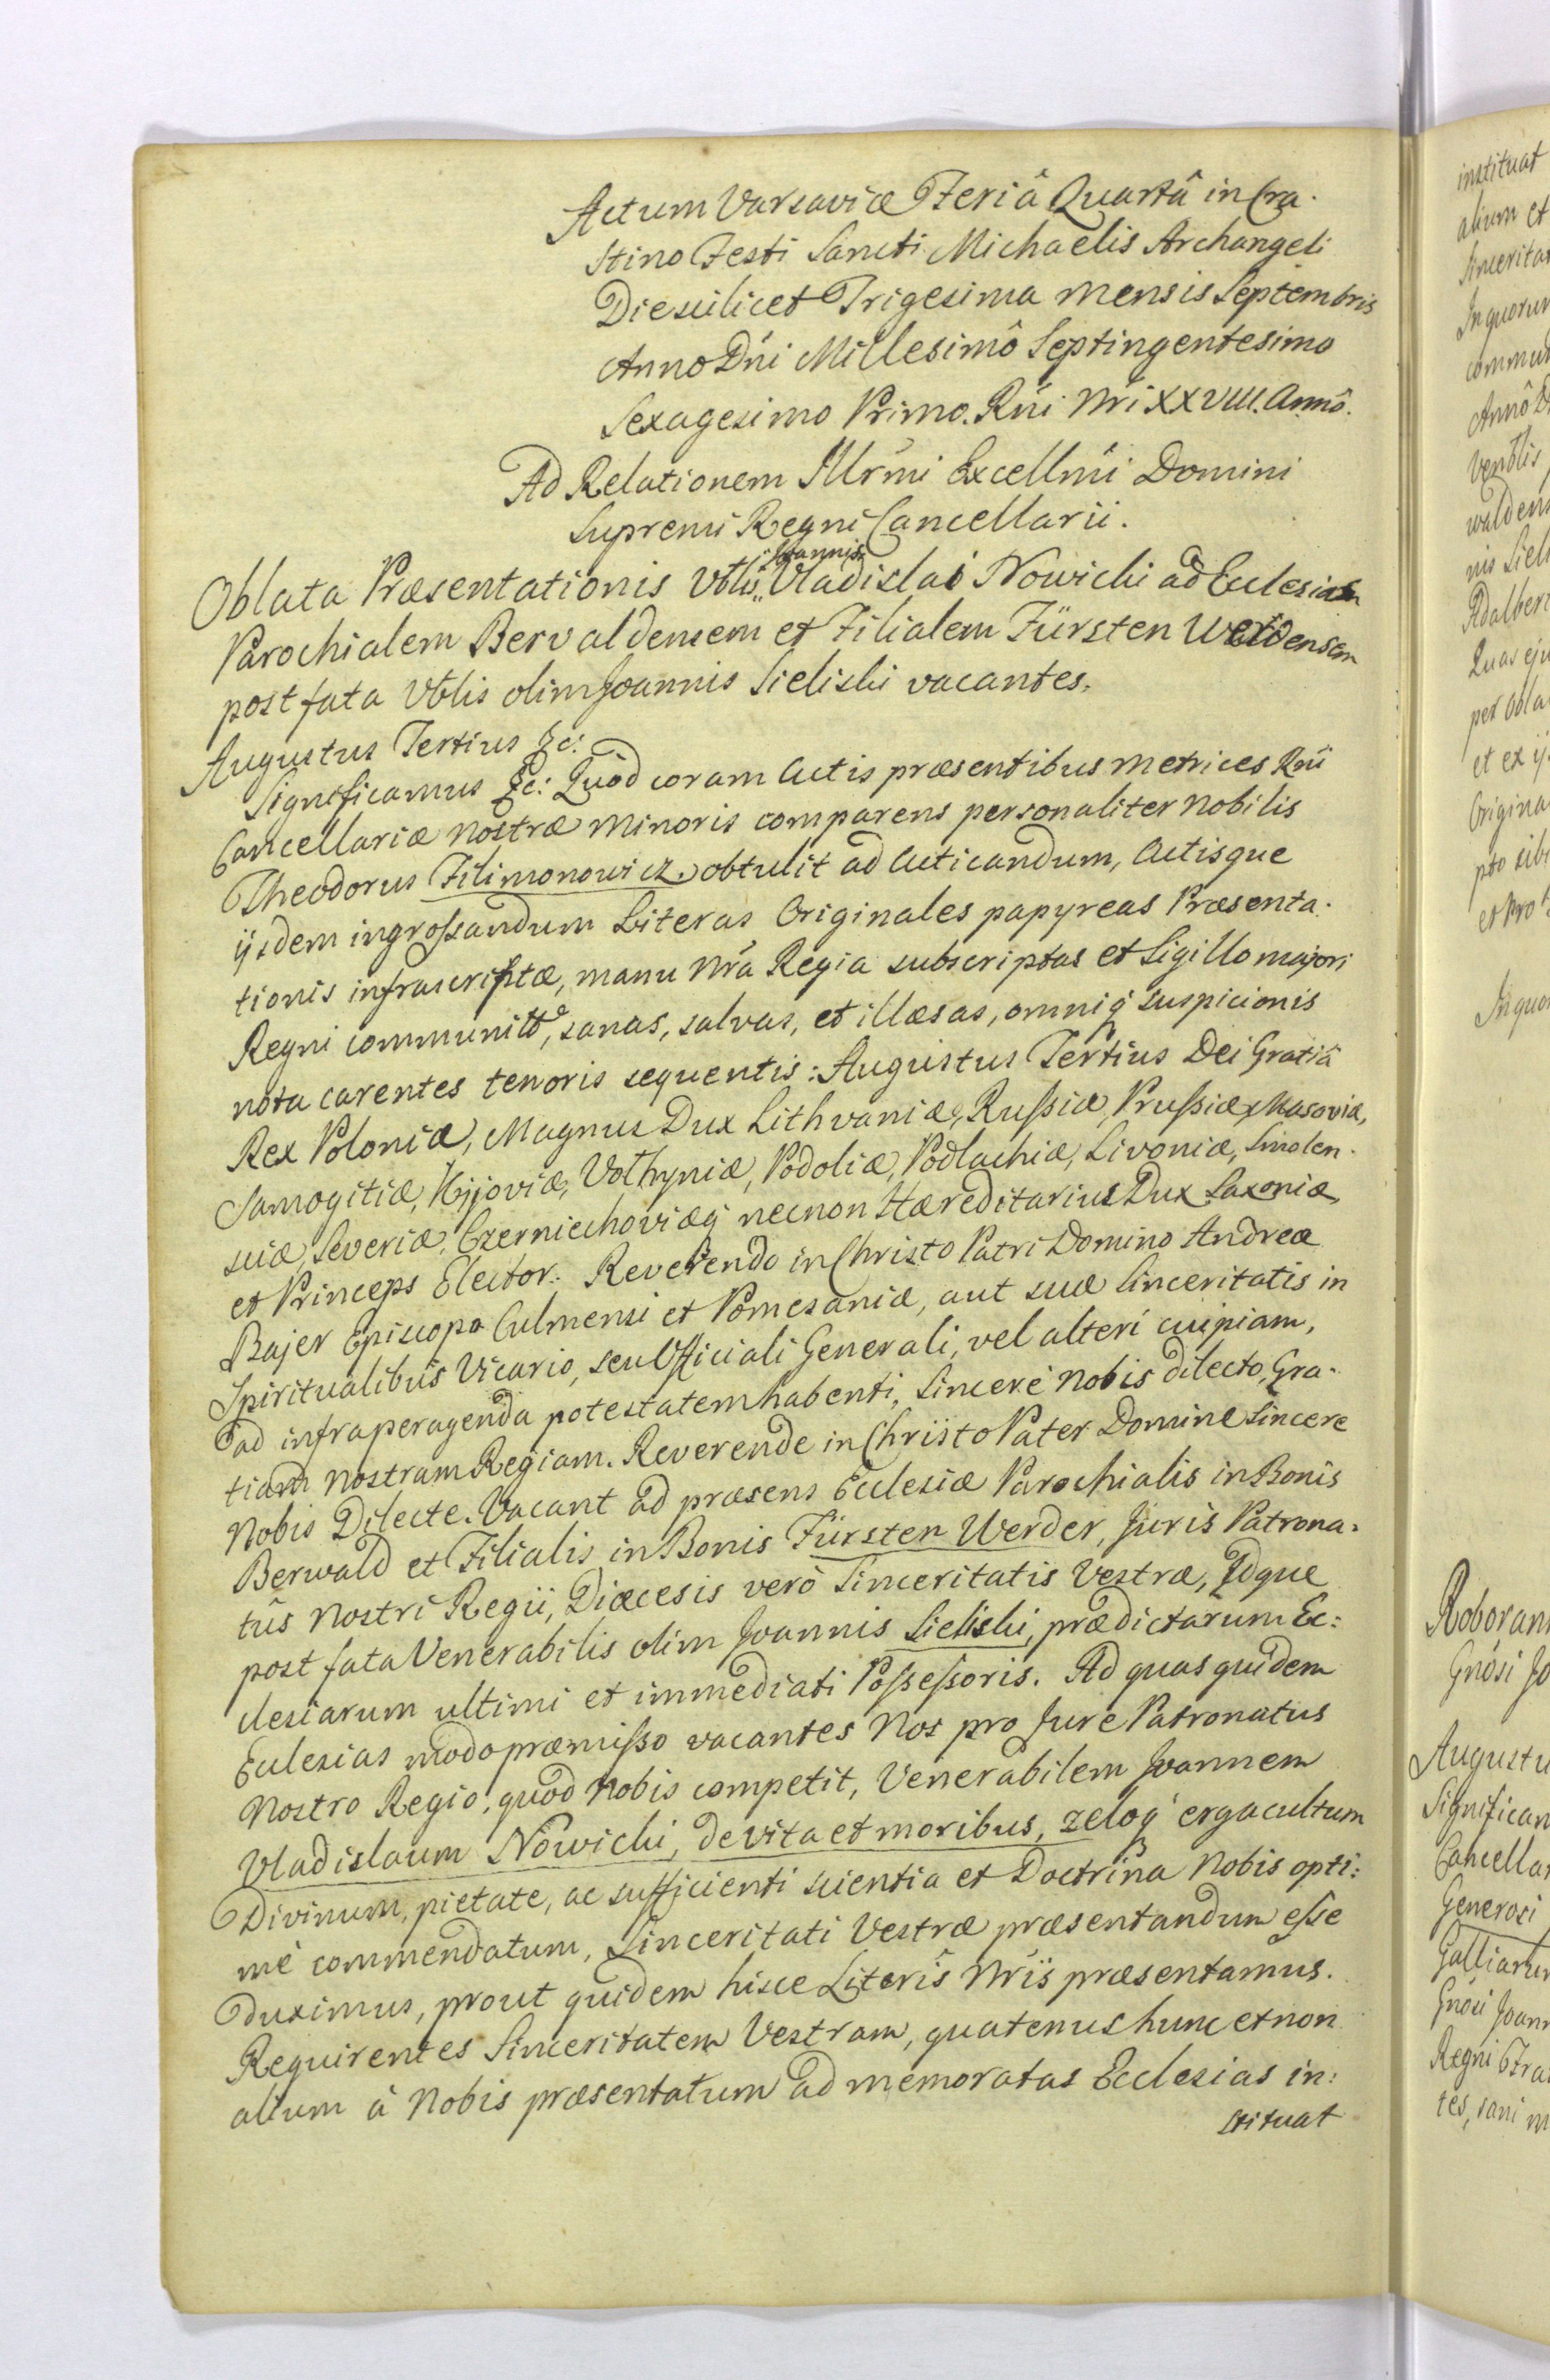 Actum Varsaviæ Feriâ Quartâ in Cra-
stino Festi Sancti Michaelis Archangeli
Die scilicet Trigesima Mensis Septembris
Anno Dni Millesimô Septingentesimo
Sexagesimo Primo. Rni Nri XXVIII. Annô.
Ad Relationem Illrmi Excellmi Domini
Supremi Regni Cancellarii.
Oblata Præsentationis Vblis Joannis Vladislai Nowicki ad Ecclesiam
Parochialem Bervaldensem et Filialem Fürsten Werdensem
post fata Vblis olim Joannis Sielski vacantes.
Augustus Tertius &c:
Significamus &c: Quòd coram Actis præsentibus Metrices Rni
Cancellariæ nostræ Minoris comparens personaliter Nobilis
Theodorus Filimonowicz obtulit ad Acticandum, Actisque
ijsdem ingrossandum Literas Originales papyreas Præsenta-
tionis infrascriptæ, manu Nra Regia subscriptas et Sigillo majori
Regni communitt, sanas, salvas, et illæsas, omniq suspicionis
nota carentes tenoris sequentis: Augustus Tertius Dei Gratiâ
Rex Poloniæ, Magnus Dux Lithvaniæ, Russiæ, Prussiæ, Masoviæ,
Samogitiæ, Kijoviæ, Volhyniæ, Podoliæ, Podlachiæ, Livoniæ, Smolen-
sciæ, Severiæ, Czerniechoviæq necnon Hæreditarius Dux Saxoniæ
et Princeps Elector. Reverendo in Christo Patri Domino Andreæ
Bajer Episcopo Culmensi et Pomesaniæ, aut suæ Sinceritatis in
Spiritualibus Vicario, seu Officiali Generali, vel alteri cuipiam,
ad infra peragenda potestatem habenti, Sincerè Nobis dilecto, Gra-
tiam nostram Regiam. Reverende in Christo Pater Domine Sincere
Nobis Dilecte. Vacant ad præsens Ecclesiæ Parochialis in Bonis
Berwald et Filialis in Bonis Fürsten Werder, Juris Patrona-
tûs Nostri Regii, Diæcesis verò Sinceritatis Vestræ, Idque
post fata Venerabilis olim Joannis Sielski, prædictarum Ec:
clesiarum ultimi et immediati Possessoris. Ad quas quidem
Ecclesias modo præmisso vacantes Nos pro Jure Patronatus
Nostro Regio, quod Nobis competit, Venerabilem Joannem
Vladislaum Nowicki, de vita et moribus, zeloq erga cultum
Divinum, pietate, ac sufficienti scientia et Doctrina Nobis opti:
mè commendatum, Sinceritati Vestræ præsentandum esse
duximus, prout quidem hisce Literis Nris præsentamus.
Requirentes Sinceritatem Vestram, quatenus hunc et non
alium à Nobis præsentatum ad memoratas Ecclesias in:
stituat
instituat
alium et
In quorum
Annô D
Venblis
Adalber
Quas eju
per Obla
et ex ij
Origina
In quor
Roboram
Gnosi Jo
Augustu
Significam
Cancellar
Generosi
Galliarum
Gnosi Joann
Regni
tes, sani m